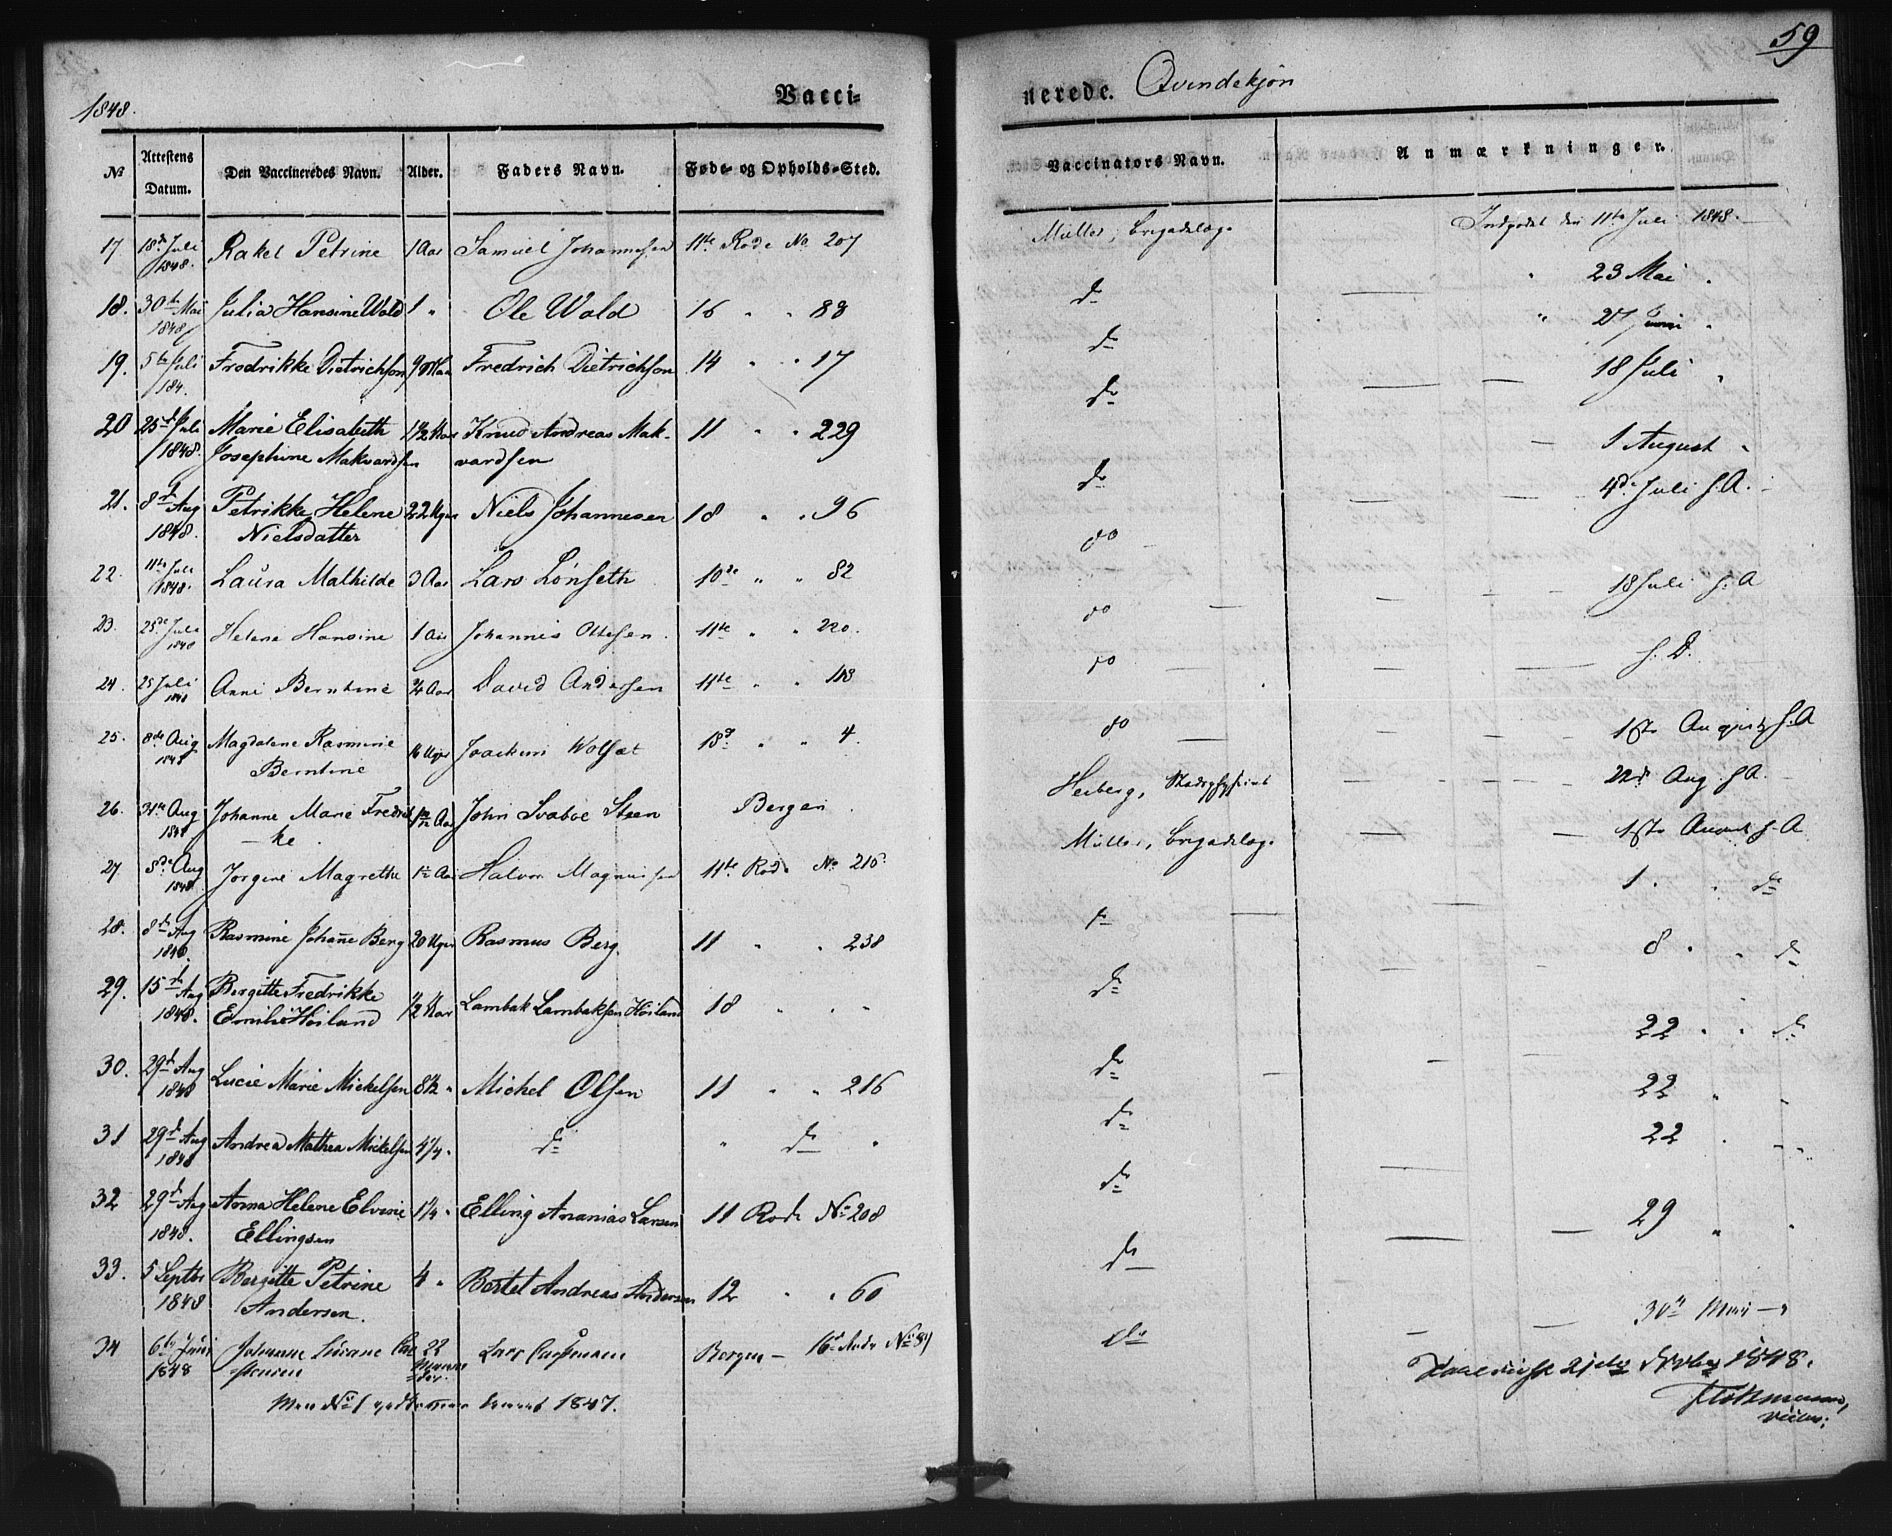 1848.
Vacci-
№
Attestens Datum.
Den Vaccineredes Navn.
Alder.
Faders Navn.
Føde- og Opholds-Sted.
17 18de Juli 1848. Rakel Petrine 1 Aar Samuel Johannesen 11te Rode No 207
18. 30te Mai 1848 Julia Hansine Wold 1 " Ole Wold 16 " " 88
19. 5te Juli 184. Fredrikke Dietrichson 9 Fredrich Dietrichson 14 " " 17
20 25d Juli 1848. Marie Elisabeth 1½ Aar Knud Andreas Mak-
Josephine Makvardsen vardsen 11 " " 229
21. 8d Aug 1848. Petrikke Helene 22 Uger Niels Johannesen 18 " " 96
Nielsdatter
22. 11te Juli 1848. Laura Mathilde 3 Aar Lars Lönseth 10de " " 82
23. 25de Juli 1848 Helene Hansine 1 Aar Johannes Ottesen. 11te " " 220.
24. 25 Juli 1848 Anne Berntine ¾ Aar David Andersen 11te " " 118
25. 8de Aug 1848 Magdalene Rasmine Uger Joachim 18d " " 4.
Berntine
26. 31te Aug 1848 Johanne Marie Fredrik Aar John Svaboe Steen Bergen.
ke.
27 8de Aug 1848 Jörgine Magrethe 1½ Aar Halvor Magnussen 11te Rode No 216.
28. 8d Aug 1848. Rasmine Johañe Berg 20 Uger Rasmus Berg. 11 " " 238
29. 15d Aug 1848. Bergitte Fredrikke
Emilie Höiland ½ Aar Lambak Lambaksen Höiland 18 " "
30. 29d Aug 1848 Lucie Marie Mickelsen 8½ " Michel Olsen 11 " " 216
31 29d Aug 1848 Andrea Mathea Mickelsen 4¼ " do " do "
32 29d Aug 1848. Anna Helene Elvine 1¼ " Elling Ananias Larsen 11 Rode No 208
Ellingsen
33. 5 Septbr 1848 Bergitte Petrine " Bertel Andreas Andersen 12 " " 60
Andersen.
34 6te Juni 1848 Johanne 22 Lars Bergen - 16d Rode No
No 1 1847.
59
nerede. Qvindekjøn
Vaccinators Navn.
Anmærkninger.
Müller, Brigadelæge Indgodet den 11te Juli 1848.
do " 23 Mai "
do " 27 Juni "
do 18 Juli "
1 August "
do 4de Juli s.A.
do
do 18 Juli s.A
do s.D.
do 1ste August s.A
Heiberg, Stadsphysicus 22d Aug s.A.
Müller, Brigadelæge 1ste August s.A
do 1 " " do
do 8 " " do
do 22 " " do
do 22 " "
do 22 " "
do 29 " "
do 30te Mai
1848.